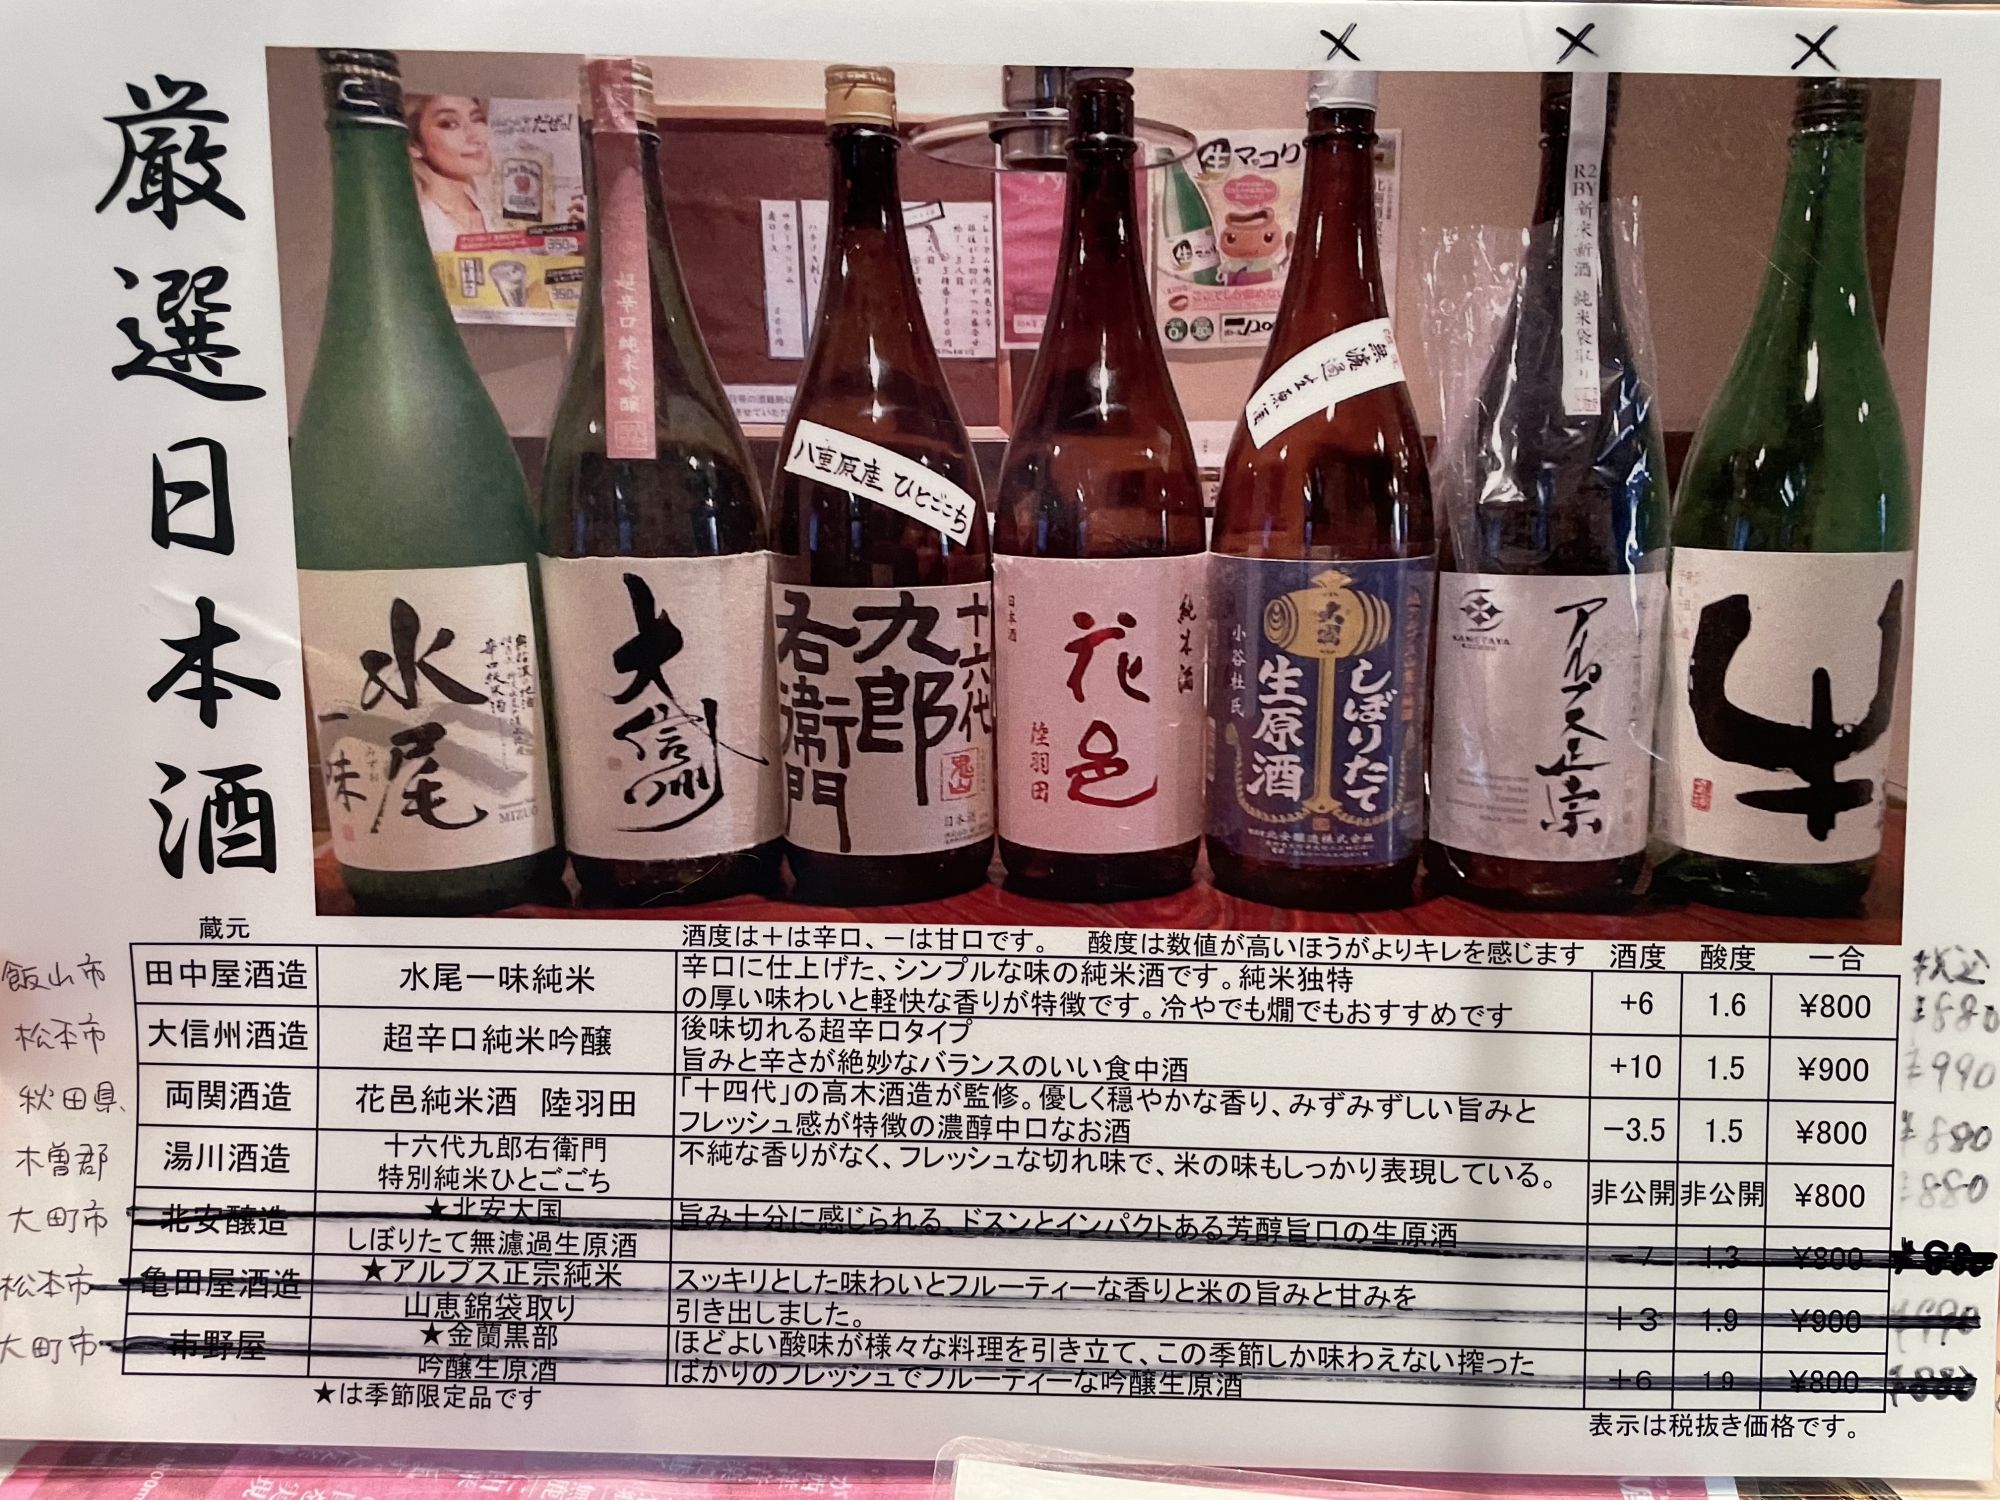 厳選日本酒
× × ×
だぜっ!
350
350
生マッコリ
超辛口純米吟醸
八重原産 ひとごこち
無濾過生原酒
R2BY新米新酒 純米袋取り
水尾
一味
MIZUO
大信州
十六代
九郎
右衛門
日本酒
純米酒
日本酒
花邑
陸羽田
大国
しぼりたて
生原酒
小谷杜氏
北安醸造株式会社
KAMETAYA
アルプス正宗
蔵元
酒度は+は辛口、-は甘口です。 酸度は数値が高いほうがよりキレを感じます 酒度 酸度 一合 税込
飯山市 田中屋酒造 水尾一味純米 辛口に仕上げた、シンプルな味の純米酒です。純米独特
の厚い味わいと軽快な香りが特徴です。冷やでも燗でもおすすめです +6 1.6 ¥800 ¥880
松本市 大信州酒造 超辛口純米吟醸 後味切れる超辛口タイプ
旨みと辛さが絶妙なバランスのいい食中酒 +10 1.5 ¥900 ¥990
秋田県、 両関酒造 花邑純米酒 陸羽田 「十四代」の高木酒造が監修。優しく穏やかな香り、みずみずしい旨みと
フレッシュ感が特徴の濃醇中口なお酒 -3.5 1.5 ¥800 ¥880
木曽郡 湯川酒造 十六代九郎右衛門 不純な香りがなく、フレッシュな切れ味で、米の味もしっかり表現している。
特別純米ひとごごち 非公開 非公開 ¥800 ¥880
大町市 北安醸造 ★北安大国 旨み十分に感じられる、ドスンとインパクトある芳醇旨口の生原酒
しぼりたて無濾過生原酒 -7 1.3 ¥800 ¥880
松本市 亀田屋酒造 ★アルプス正宗純米 スッキリとした味わいとフルーティーな香りと米の旨みと甘みを
山恵錦袋取り 引き出しました。 +3 1.9 ¥900 ¥990
大町市 市野屋 ★金蘭黒部 ほどよい酸味が様々な料理を引き立て、この季節しか味わえない搾った
吟醸生原酒 ばかりのフレッシュでフルーティーな吟醸生原酒 +6 1.9 ¥800 ¥880
★は季節限定品です
表示は税抜き価格です。